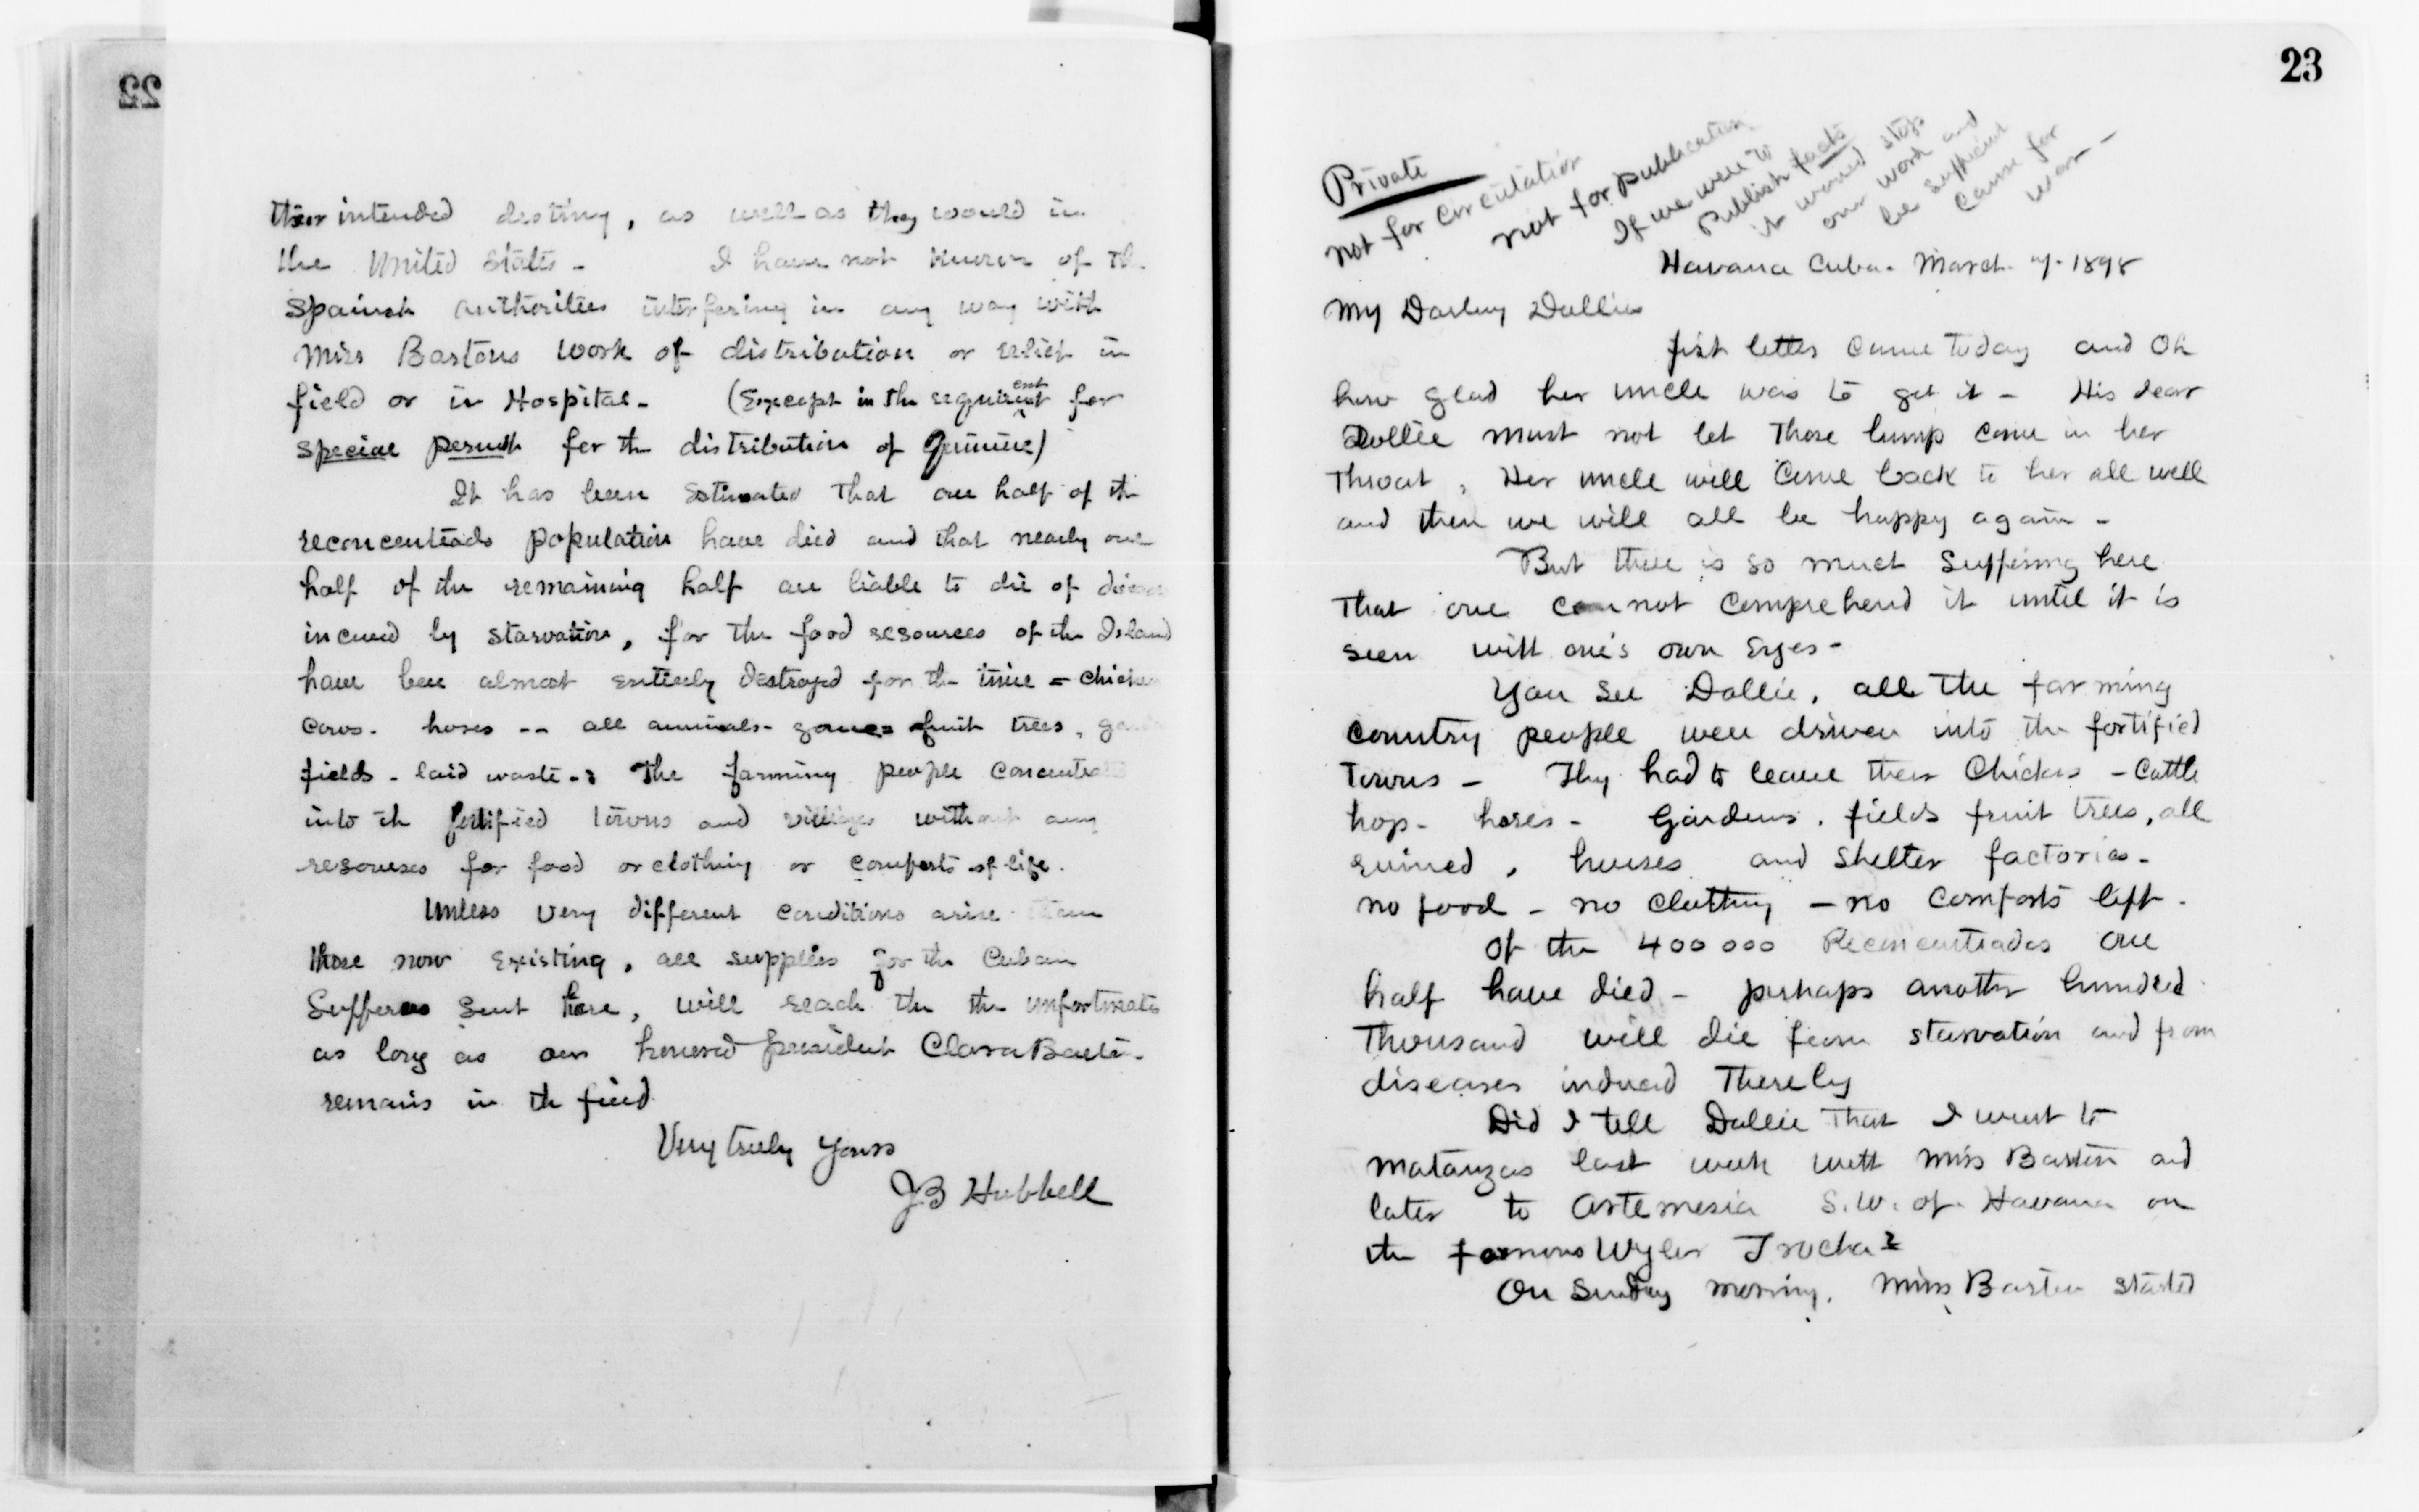 22
their intended destiny, as well as they would in
the United States - I have not known of th
Spainish authorities interfering in any way with
Miss Bartons work of distribution or relief in
field or in Hospital - (Except in the requirent for
ent
special permit for th distribution of Quinine)
It has been Estimated that one half of th
reconcentrado population have died and that nearly one
half of the remaining half are liable to die of disease
incured by starvation, for the food resources of the Island
have been almost entirely destroyed for th time = chicken
cows - horses -- all animals - gone = fruit trees, garden
fields - laid waste -: The farming people concentrated
into th fortified towns and villages without any
resourses for food or clothing or comforts of life.
Unless very different conditions arise than
those now Existing, all supplies for the Cuban
Sufferers sent here, will reach the the unfortunate
as long as our honored president Clara Barton
remains in th field
Very truly yours
JB Hubbell
23
Private
not for circulation
not for publication
If we were to
publish facts
it would stop
our work and
be sufficient
cause for
war -
Havana Cuba. March 7. 1898
My Darling Dollies
first letter came today and Oh
how glad her uncle was to get it - His dear
Dollie must not let those lump come in her
throat, Her uncle will come back to her all well
and then we will all be happy again -
But there is so much suffering here
that one cannot comprehend it until it is
seen with one's own Eyes -
You see Dollie, all the farming
country people were driven into the fortified
towns - They had to leave their Chickens - Cattle
hogs - horses - Gardens, fields fruit trees, all
ruined, houses and shelter factories -
no food - no clothing - no comforts left.
Of the 400 000 Reconcentrados one
half have died - perhaps another hundred
thousand will die from starvation and from
diseases induced thereby
Did I tell Dollie that I went to
Matanzas last week with Miss Barton and
later to Artemesia S.W. of Havana on
the famous Wyler Trocha?
On Sunday morning, Miss Barton started